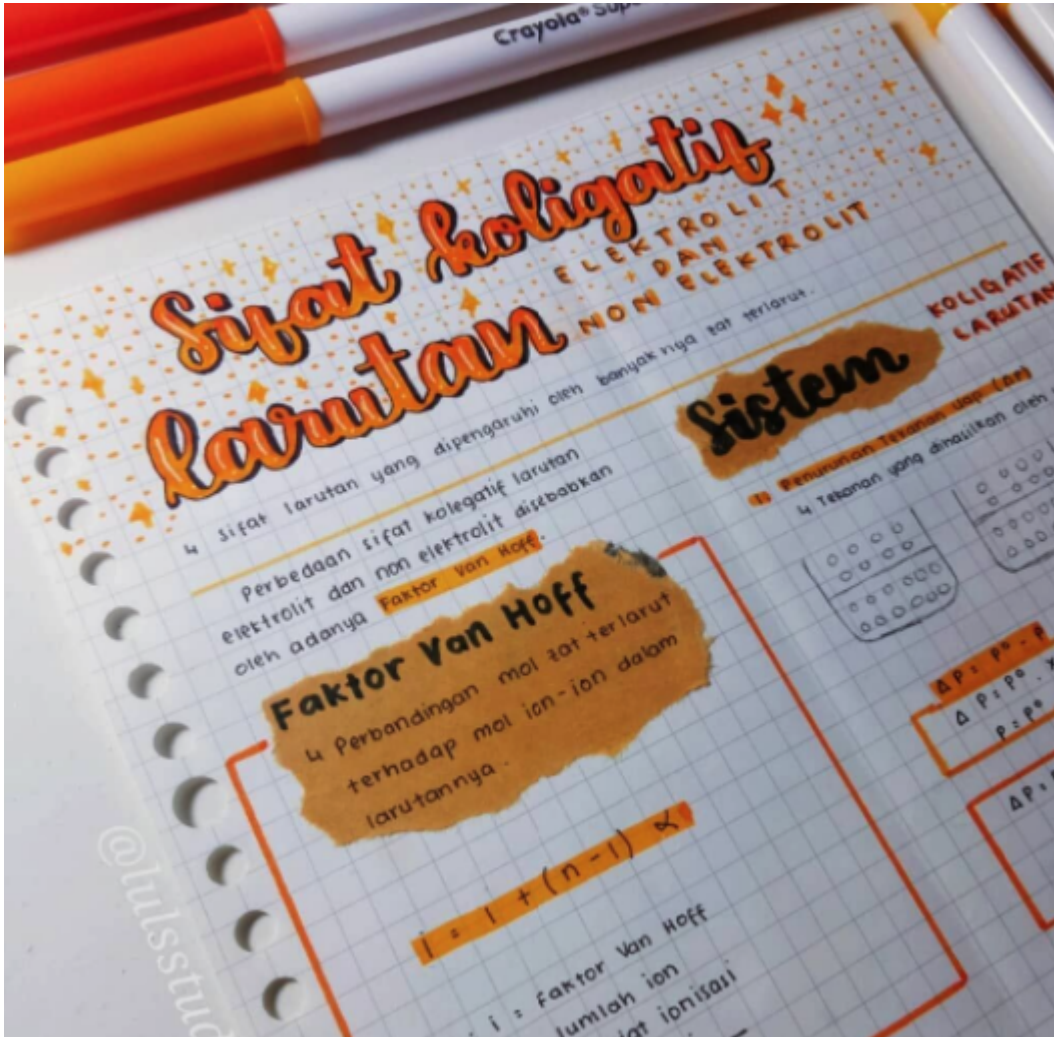 Crayola® Supe
Sifat koligatif
larutan
ELEKTROLIT
DAN
NON ELEKTROLIT
↳ sifat larutan yang dipengaruhi oleh banyaknya zat terlarut.
Perbedaan sifat kolegatif larutan
elektrolit dan non elektrolit disebabkan
oleh adanya Faktor Van Hoff.
Faktor Van Hoff
↳ Perbandingan mol zat terlarut
terhadap mol ion-ion dalam
larutannya.
i = 1 + (n - 1) α
i = Faktor Van Hoff
umlah ion
jat ionisasi
Sistem
KOLIGATIF
LARUTAN
1. Penurunan Tekanan Uap (ΔP)
↳ Tekanan yang dihasilkan oleh
ΔP = P° - P
ΔP = P° . X
P = P°
ΔP =
@lulsstud